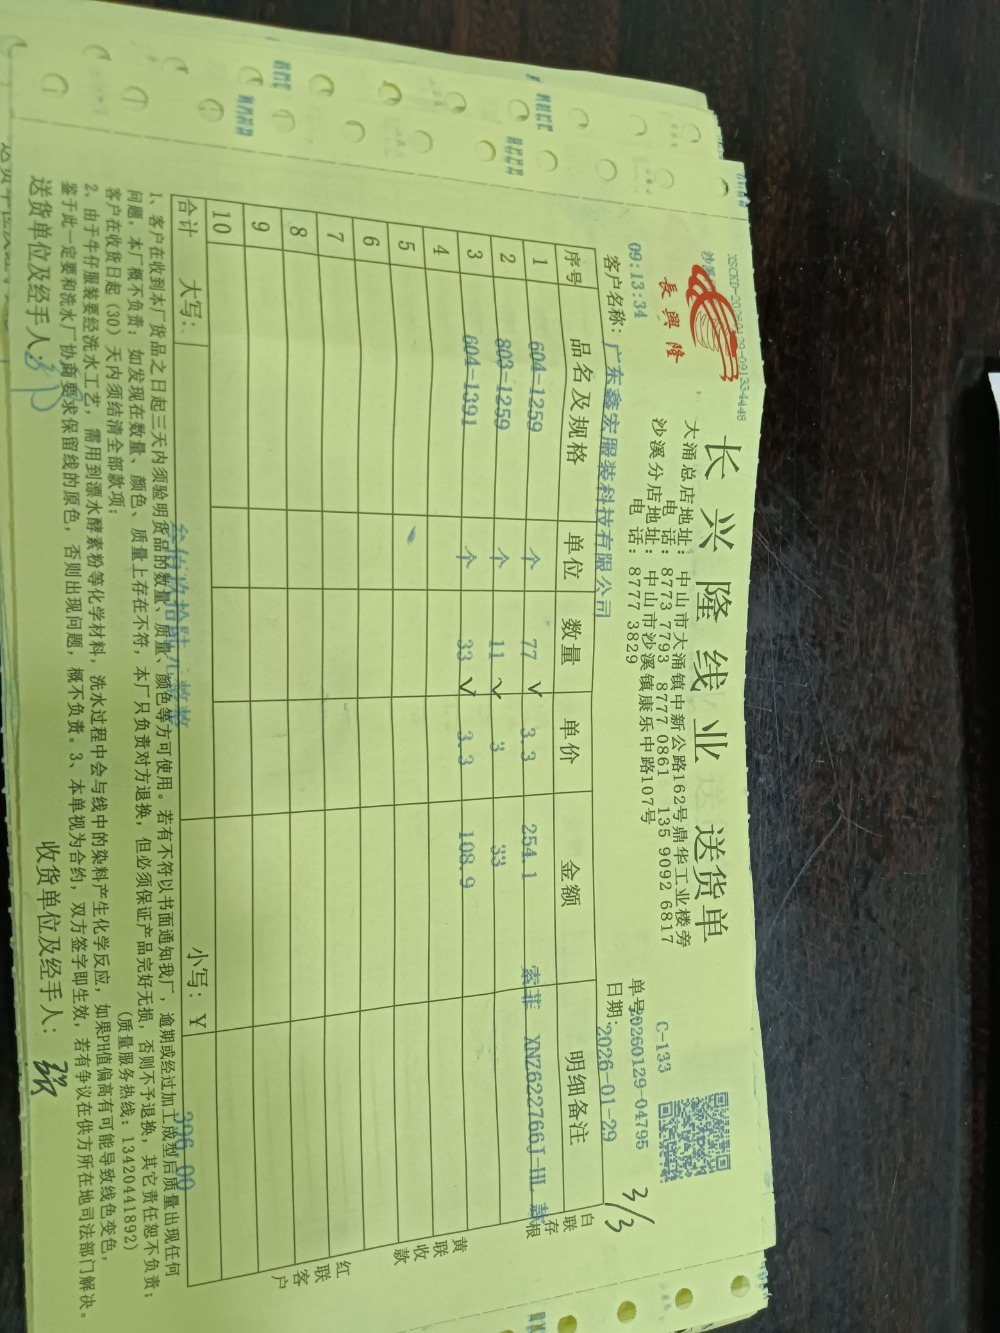 長興隆
长兴隆线业 送货单
大涌总店地址：中山市大涌镇中新公路162号鼎华工业楼旁
电 话：8773 7793 8777 0861 135 9092 6817
沙溪分店地址：中山市沙溪镇康乐中路107号
电 话：8777 3829
C-133
单号:20260129-04795
3/3
09:13:34
日期:2026-01-29
客户名称：广东鑫宏服装科技有限公司
序号 品名及规格 单位 数量 单价 金额 明细备注
1 604-1259 个 77 √ 3.3 254.1 索菲 XNZ622766J-HL 款
2 803-1259 个 11 √ 3 33
3 604-1391 个 33 √ 3.3 108.9
4
5
6
7
8
9
10
合计 大写： 小写：￥ 396.00
白联存根
黄联收款
红联客户
1、客户在收到本厂货品之日起三天内须验明货品的数量、质量、颜色等方可使用。若有不符以书面通知我厂，逾期或经过加工成型后质量出现任何
问题，本厂概不负责；如发现在数量、颜色、质量上存在不符，本厂只负责对方退换，但必须保证产品完好无损，否则不予退换，其它责任恕不负责；
客户在收货日起（30）天内须结清全部款项；
（质量服务热线：13420441892）
2、由于牛仔服装要经洗水工艺，需用到漂水酵素粉等化学材料，洗水过程中会与线中的染料产生化学反应，如果PH值偏高有可能导致线色变色，
鉴于此一定要和洗水厂协商要求保留线的原色，否则出现问题，概不负责。3、本单视为合约，双方签字即生效，若有争议在供方所在地司法部门解决。
送货单位及经手人：
收货单位及经手人：